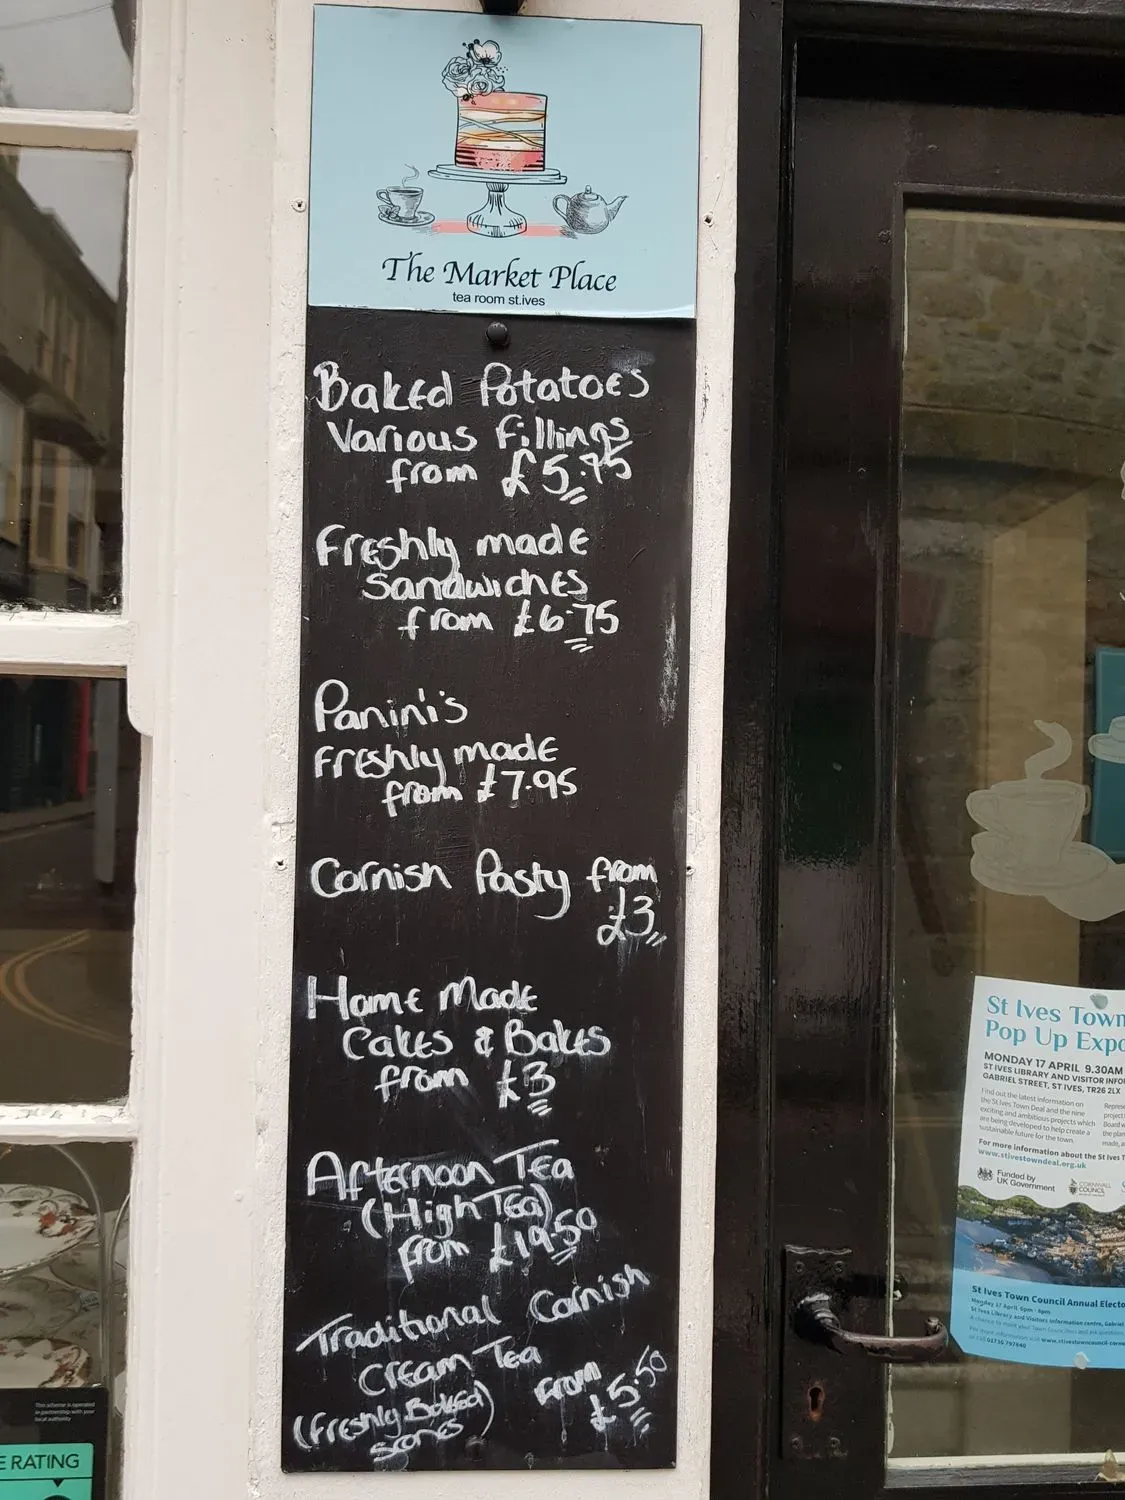 The Market Place
tea room st.ives
Baked Potatoes
Various fillings
from £5.75
Freshly made
Sandwiches
from £6.75
Panini's
Freshly made
from £7.95
Cornish Pasty from
£3
Home Made
Cakes & Bakes
from £3
Afternoon Tea
(High Tea)
from £19.50
Traditional Cornish
Cream Tea
(Freshly Baked
scones)
From
£5.50
St Ives Town
Pop Up Expo
MONDAY 17 APRIL 9.30AM
ST IVES LIBRARY AND VISITOR INFO
GABRIEL STREET, ST IVES, TR26 2LX
Find out the latest information on
the St Ives Town Deal and the nine
exciting and ambitious projects which
are being developed to help create a
sustainable future for the town.
For more information about the St Ives T
www.stivestowndeal.org.uk
Funded by
UK Government
CORNWALL
COUNCIL
St Ives Town Council Annual Electo
Monday 17 April 6pm - 8pm
St Ives Library and Visitors information centre, Gabriel
This scheme is operated
in partnership with your
local authority
E RATING